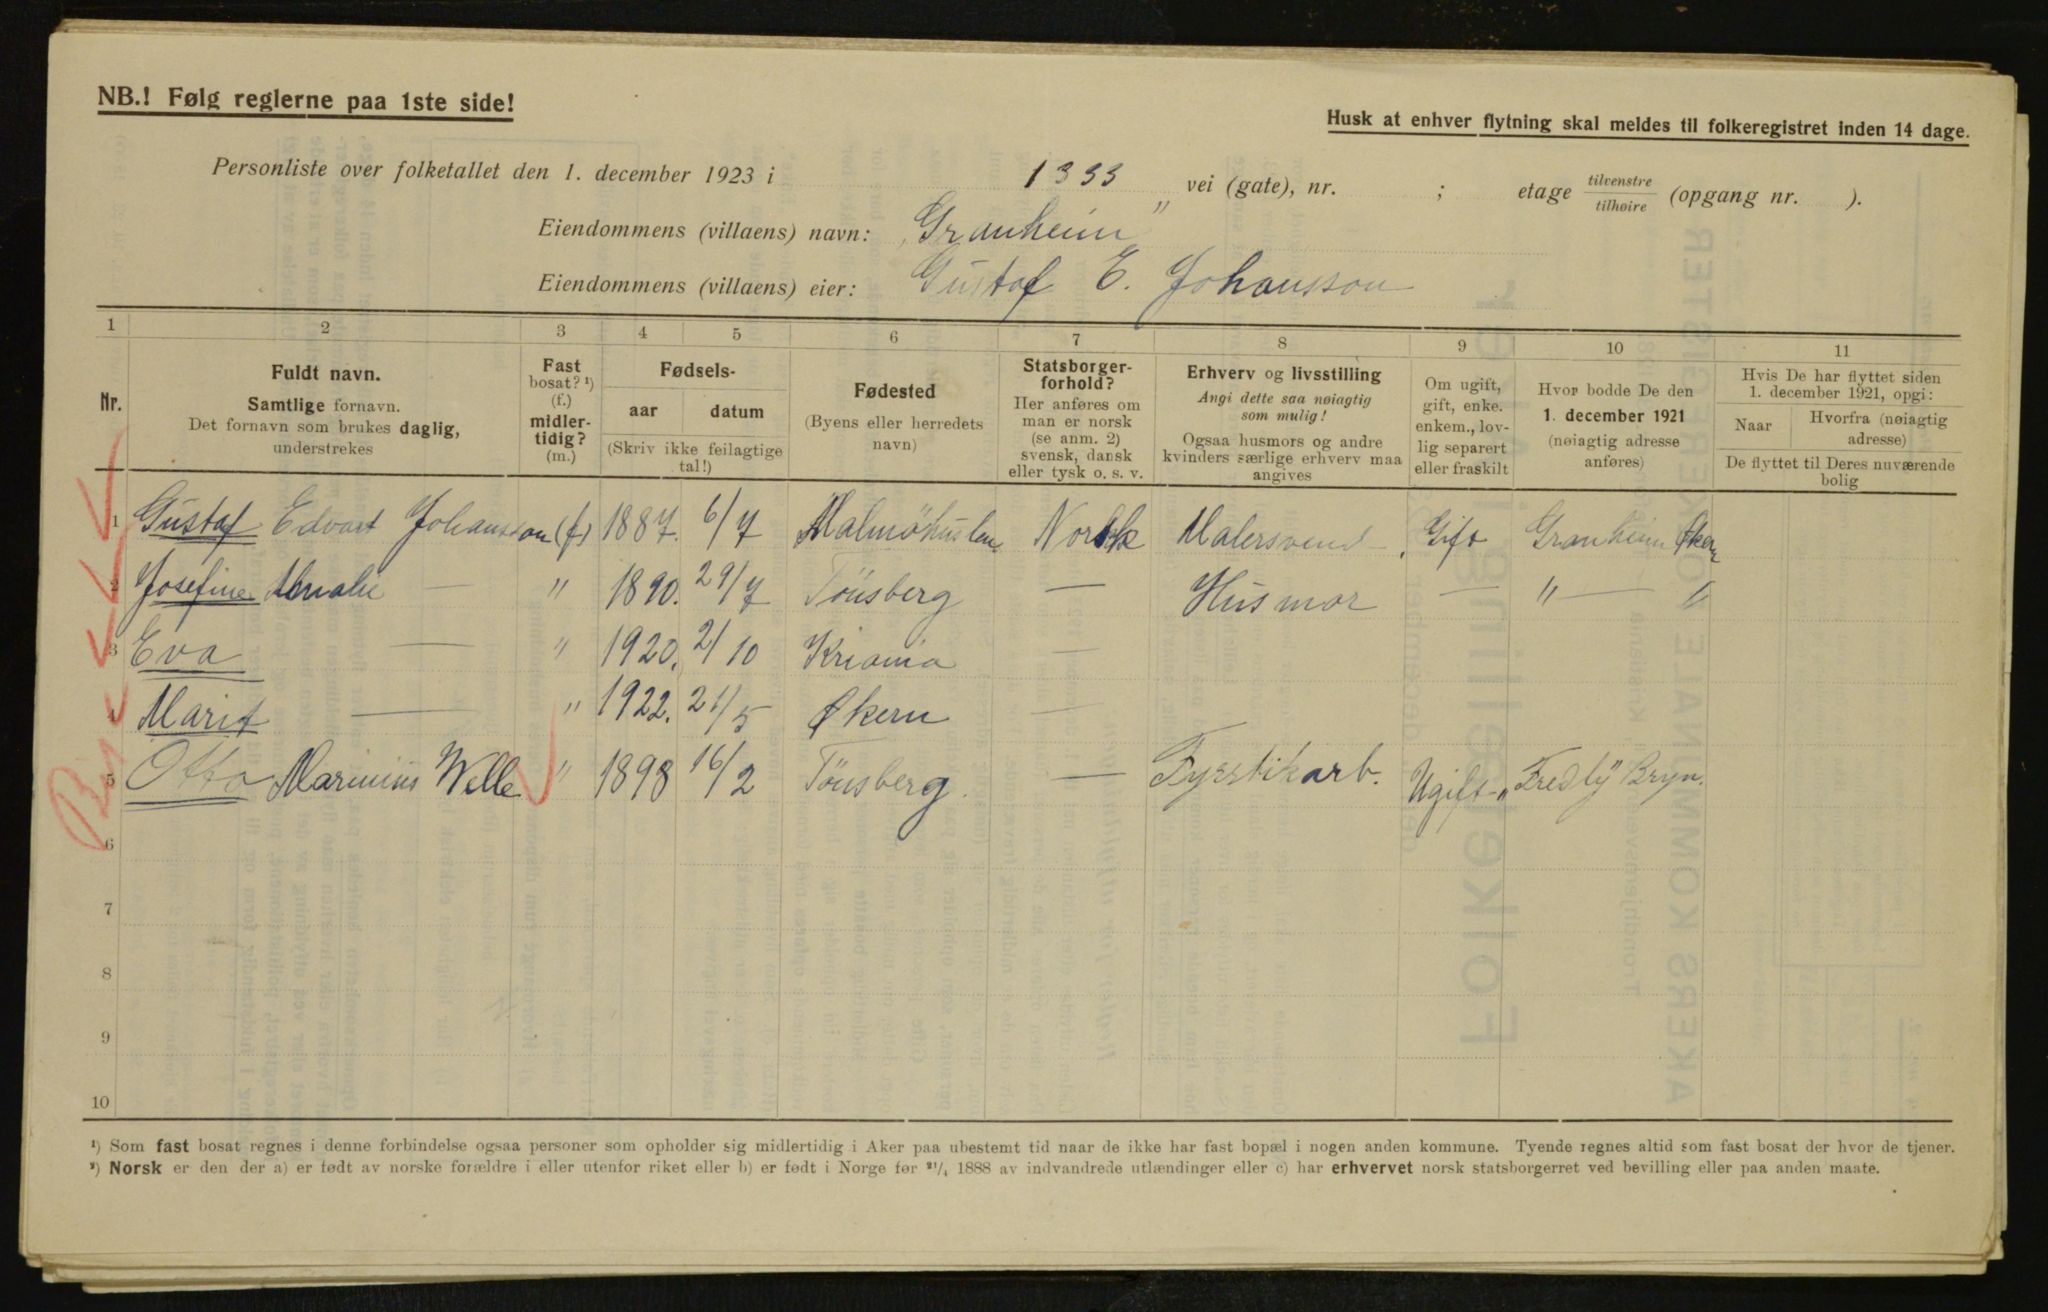 NB.! Følg reglerne paa 1ste side!
Husk at enhver flytning skal meldes til folkeregistret inden 14 dage.
Personliste over folketallet den 1. december 1923 i 1333 vei (gate), nr. ; etage tilvenstre/tilhøire (opgang nr. ).
Eiendommens (villaens) navn: „Granheim"
Eiendommens (villaens) eier: Gustaf E. Johansson
1 2 3 4 5 6 7 8 9 10 11
Nr.
Fuldt navn.
Samtlige fornavn.
Det fornavn som brukes daglig,
understrekes
Fast
bosat? ¹)
(f.)
midler-
tidig?
(m.)
Fødsels-
aar datum
(Skriv ikke feilagtige
tal!)
Fødested
(Byens eller herredets
navn)
Statsborger-
forhold?
Her anføres om
man er norsk
(se anm. 2)
svensk, dansk
eller tysk o. s. v.
Erhverv og livsstilling
Angi dette saa nøiagtig
som mulig!
Ogsaa husmors og andre
kvinders særlige erhverv maa
angives
Om ugift,
gift, enke.
enkem., lov-
lig separert
eller fraskilt
Hvor bodde De den
1. december 1921
(nøiagtig adresse
anføres)
Hvis De har flyttet siden
1. december 1921, opgi:
Naar Hvorfra (nøiagtig
adresse)
De flyttet til Deres nuværende
bolig
1 Gustaf Edvart Johansson (f) 1887. 6/7 Malmöhuslen Norsk Malersvend Gift Granheim Økern
2 Josefine Amalie — " 1890. 29/7 Tönsberg — Husmor — " — "
3 Eva — " 1920. 2/10 Kriania —
4 Marit — " 1922. 21/5 Økern —
5 Otto Marinius Welle " 1898 16/2 Tönsberg. — Fyrstikarb. Ugift „Fredly Bryn.
6
7
8
9
10
¹) Som fast bosat regnes i denne forbindelse ogsaa personer som opholder sig midlertidig i Aker paa ubestemt tid naar de ikke har fast bopæl i nogen anden kommune. Tyende regnes altid som fast bosat der hvor de tjener.
²) Norsk er den der a) er født av norske forældre i eller utenfor riket eller b) er født i Norge før ²¹/₄ 1888 av indvandrede utlændinger eller c) har erhvervet norsk statsborgerret ved bevilling eller paa anden maate.